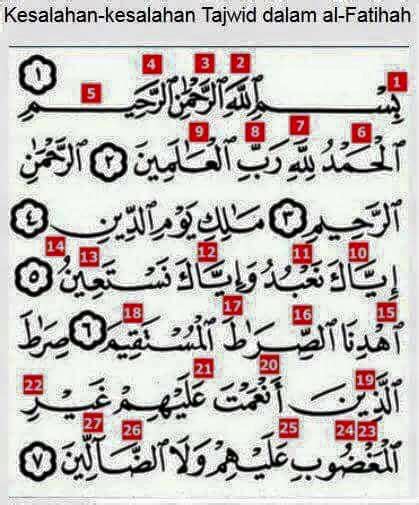 Kesalahan-kesalahan Tajwid dalam al-Fatihah
4 3 2 1
5
بِسْمِ ٱللَّهِ ٱلرَّحْمَٰنِ ٱلرَّحِيمِ ١
9 8 7 6
ٱلْحَمْدُ لِلَّهِ رَبِّ ٱلْعَالَمِينَ ٢ ٱلرَّحْمَٰنِ
ٱلرَّحِيمِ ٣ مَالِكِ يَوْمِ ٱلدِّينِ ٤
14 13 12 11 10
إِيَّاكَ نَعْبُدُ وَإِيَّاكَ نَسْتَعِينُ ٥
18 17 16 15
ٱهْدِنَا ٱلصِّرَاطَ ٱلْمُسْتَقِيمَ ٦ صِرَاطَ
22 21 20 19
ٱلَّذِينَ أَنْعَمْتَ عَلَيْهِمْ غَيْرِ
27 26 25 24 23
ٱلْمَغْضُوبِ عَلَيْهِمْ وَلَا ٱلضَّآلِّينَ ٧